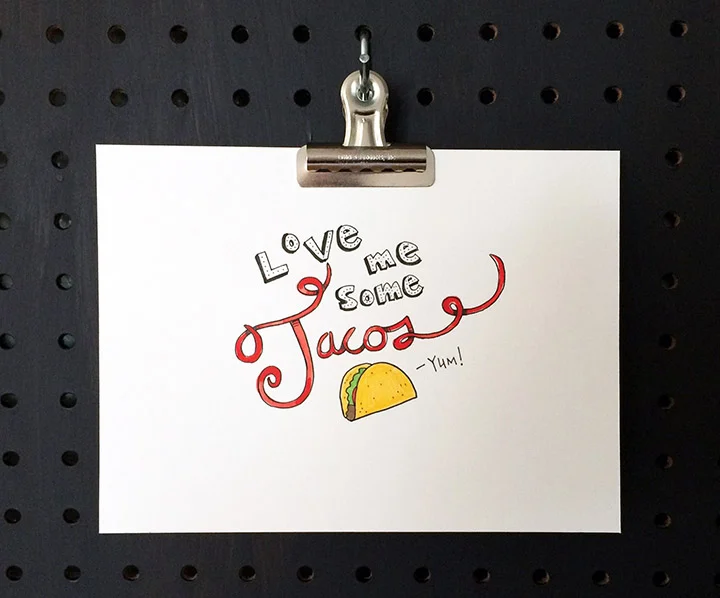 Love me
some
Tacos
- Yum!